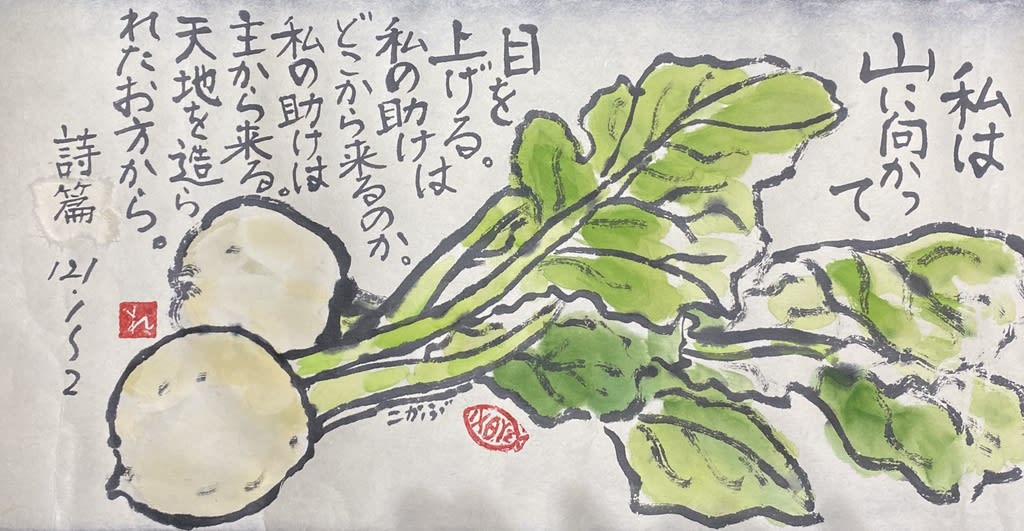 私は
山に向かっ
て
目を
上げる。
私の助けは
どこから来るのか。
私の助けは
主から来る。
天地を造ら
れたお方から。
詩篇
121.1〜2
こかぶ
れ